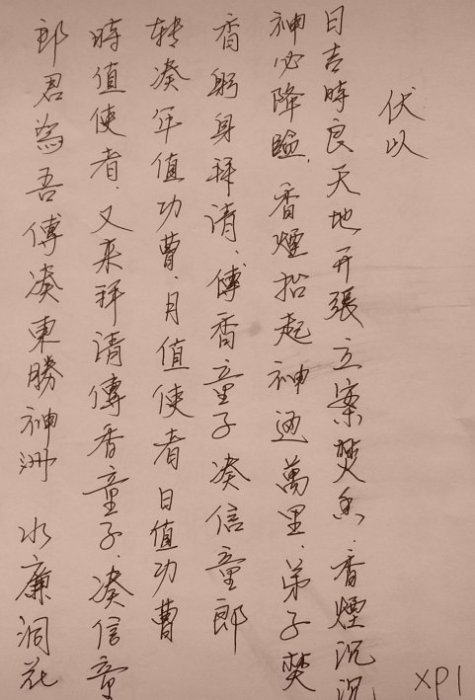 伏以
日吉時良天地开張立案焚香.香煙沉沉
神必降臨.香煙抬起神通萬里.弟子焚
香躬身拜請.傳香童子凑信童郎
转凑年值功曹.月值使者日值功曹
時值使者.又来拜請傳香童子.凑信童
郎君為吾傳凑東勝神洲 水廉洞花
XP1